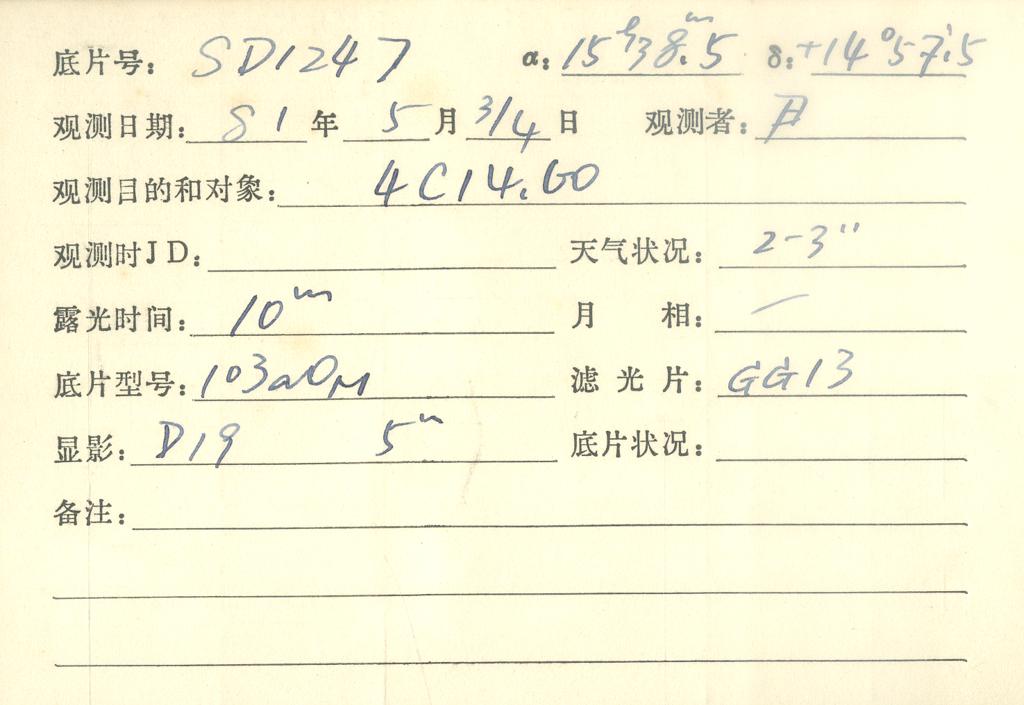 底片号: SD1247 α: 15ʰ38ᵐ.5 δ: +14°57'.5
观测日期: 81年 5月 3/4日 观测者:
观测目的和对象: 4C14.60
观测时JD: 天气状况: 2-3"
露光时间: 10ᵐ 月 相: —
底片型号: 103aO 滤光片: GG13
显影: D19 5ᵐ 底片状况:
备注: